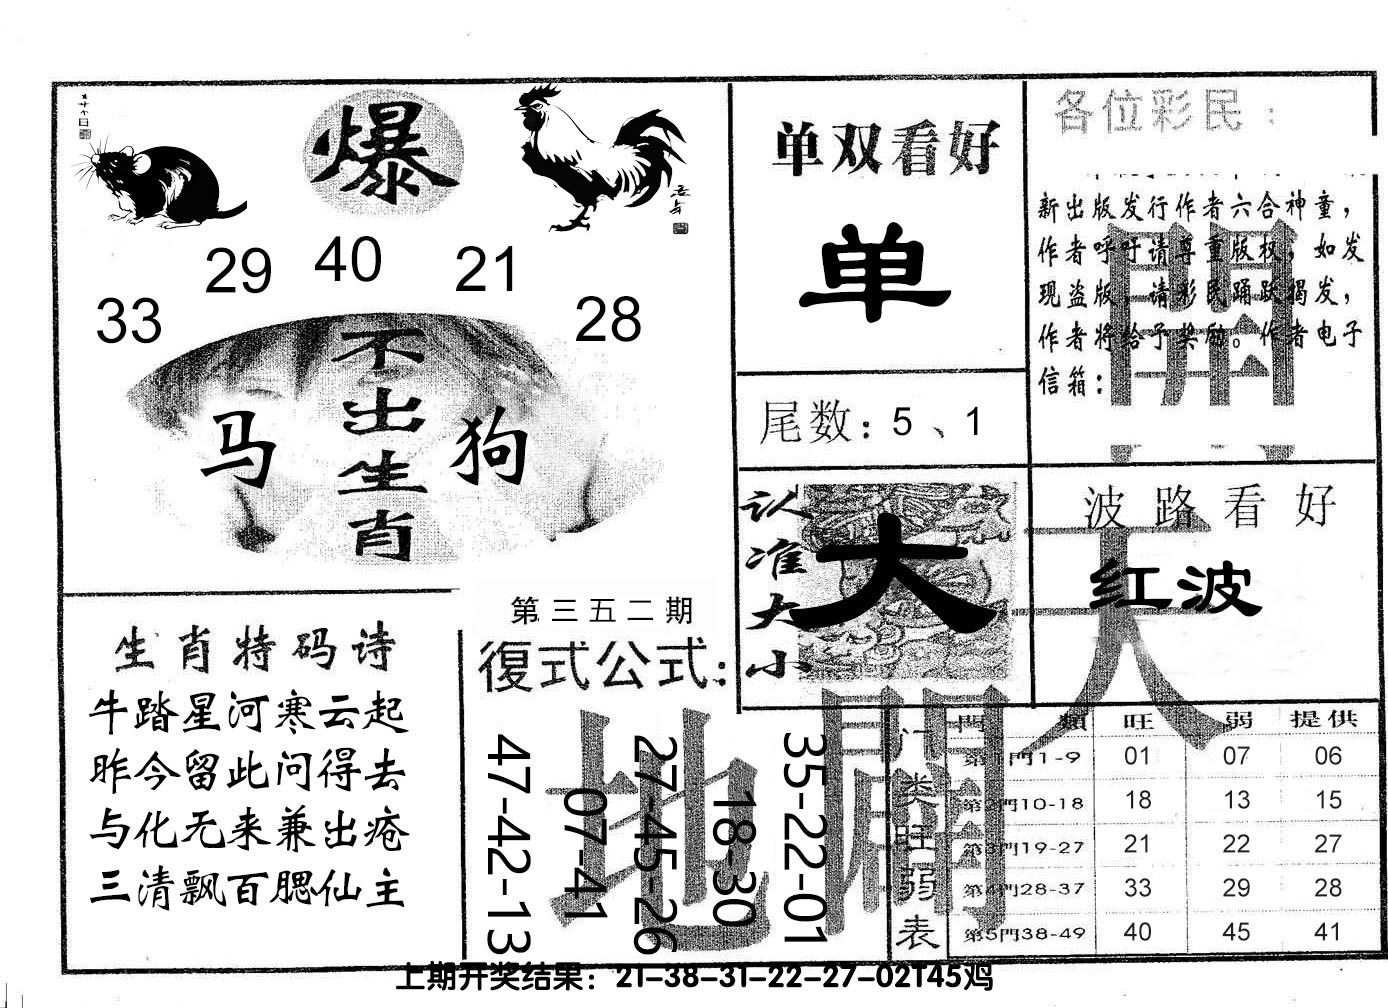 爆
29 40 21
33 28
不出生肖
马 狗
单双看好
单
尾数：5、1
各位彩民：
新出版发行作者六合神童，
作者呼吁请尊重版权，如发
现盗版，请彩民踊跃揭发，
作者将给予奖励。作者电子
信箱：
認准大小
大
波路看好
红波
生肖特码诗
牛踏星河寒云起
昨今留此问得去
与化无来兼出疮
三清飘百腮仙主
第三五二期
復式公式：
47-42-13
07-41
27-45-26
18-30
35-22-01
天
地
開
開
门类旺弱表
門類 旺 弱 提供
第1門1-9 01 07 06
第2門10-18 18 13 15
第3門19-27 21 22 27
第4門28-37 33 29 28
第5門38-49 40 45 41
上期开奖结果：21-38-31-22-27-02T45鸡